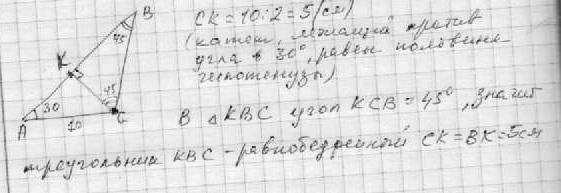 B
45
СК = 10:2 = 5 (см)
(катет, лежащий против
угла в 30°, равен половине
гипотенузы)
K
45
30
A
10
C
В △ KBC угол KCB = 45°, значит
треугольник KBC - равнобедренный CK = BK = 5см